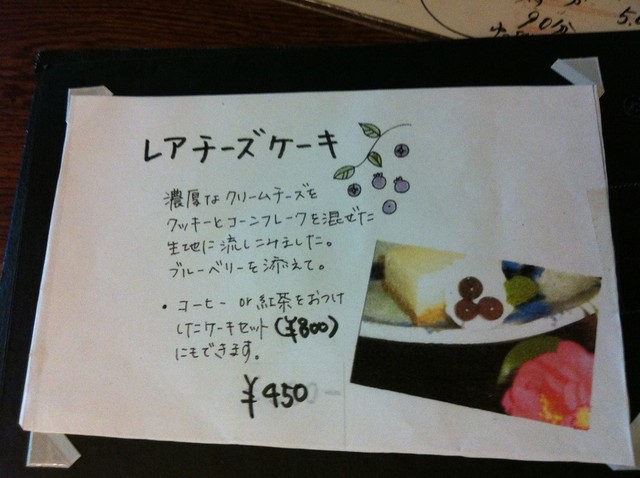 90分
レアチーズケーキ
濃厚なクリームチーズを
クッキーとコーンフレークを混ぜた
生地に流しこみました。
ブルーベリーを添えて。
・コーヒー or 紅茶をおつけ
したケーキセット(¥800)
にもできます。
¥450